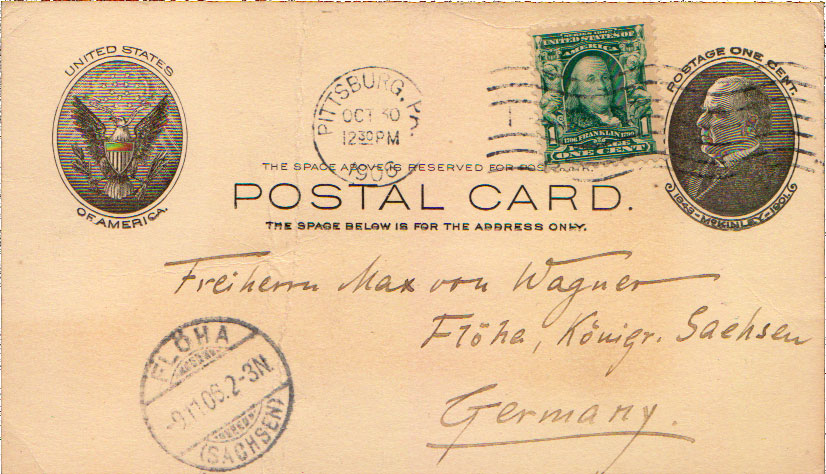 UNITED STATES
OF AMERICA.
PITTSBURG, PA.
OCT 30
12 30 PM
SERIES 1902
UNITED STATES OF
AMERICA
1706 FRANKLIN 1790
1 1
ONE CENT
POSTAGE ONE CENT.
1843-McKINLEY-1901.
THE SPACE ABOVE IS RESERVED FOR POSTMARK.
POSTAL CARD.
THE SPACE BELOW IS FOR THE ADDRESS ONLY.
Freiherrn Max von Wagner
Flöha, Königr. Sachsen
Germany.
FLÖHA
-9.11.05.2-3N.
(SACHSEN)